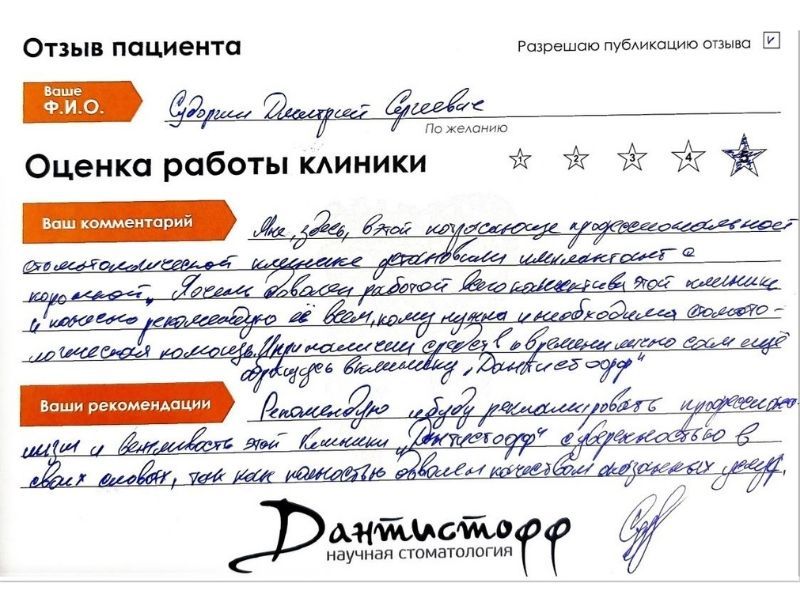 Отзыв пациента
Разрешаю публикацию отзыва
Ваше
Ф.И.О.
Дмитрий Сергеевич
По желанию
Оценка работы клиники
1 2 3 4 5
Ваш комментарий
Мне, здесь, в этой потрясающе профессиональной
стоматологической клинике установили имплантант с
коронкой. Очень доволен работой всего коллектива этой клиники
и рекомендую её всем, кому нужна и необходима стомато-
логическая помощь. При наличии средств и времени лично сам ещё
обращусь в клинику „Дантистофф"
Ваши рекомендации
Рекомендую и буду рекламировать профессиона-
лизм и вежливость этой клиники „Дантистофф" с уверенностью в
своих словах, так как полностью доволен качеством оказанных услуг.
Дантистофф
научная стоматология